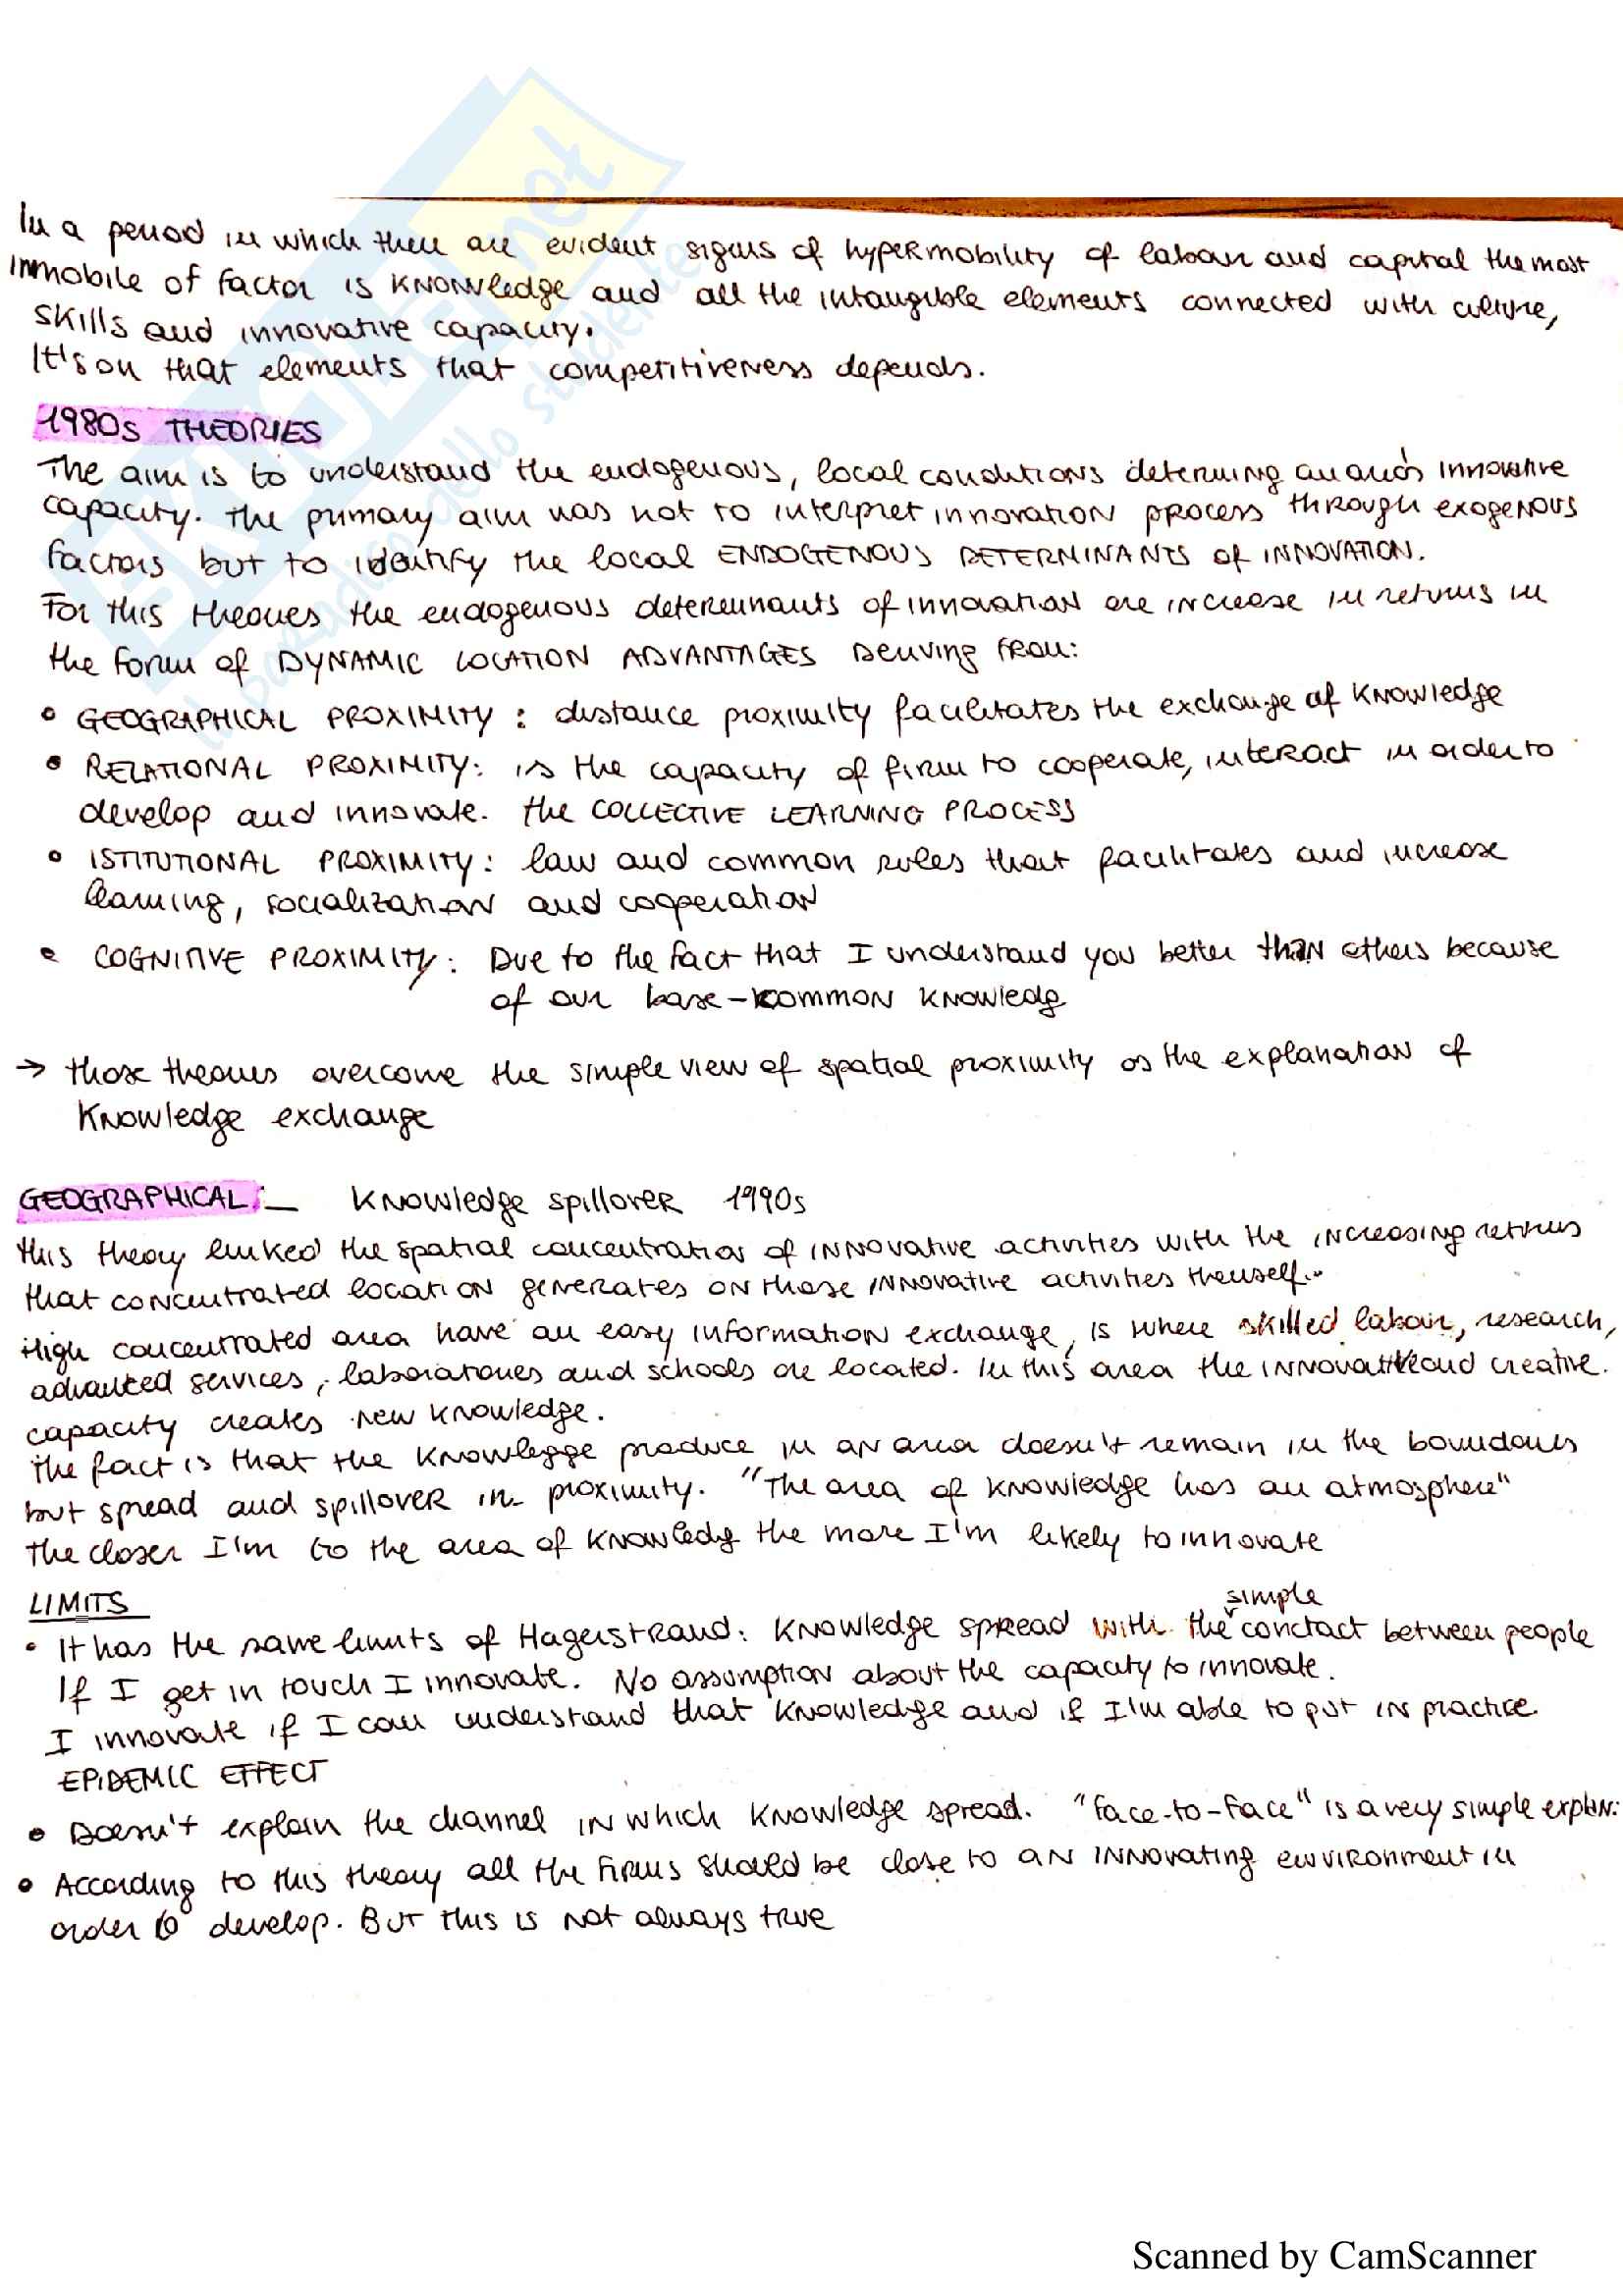 In a period in which there are evident signs of hypermobility of labour and capital the most
immobile of factor is knowledge and all the intangible elements connected with culture,
skills and innovative capacity.
It's on that elements that competitiveness depends.
1980s THEORIES
The aim is to understand the endogenous, local conditions determing an area's innovative
capacity. The primary aim was not to interpret innovation process through exogenous
factors but to identify the local ENDOGENOUS DETERMINANTS of INNOVATION.
For this theories the endogenous determinants of innovation are increase in returns in
the form of DYNAMIC LOCATION ADVANTAGES Deriving from:
• GEOGRAPHICAL PROXIMITY: distance proximity facilitates the exchange of knowledge
• RELATIONAL PROXIMITY: is the capacity of firm to cooperate, interact in order to
develop and innovate. the COLLECTIVE LEARNING PROCESS
• ISTITUTIONAL PROXIMITY: law and common rules that facilitates and increase
learning, socialization and cooperation
• COGNITIVE PROXIMITY: Due to the fact that I understand you better than others because
of our base-common knowledg
→ those theories overcome the simple view of spatial proximity as the explanation of
knowledge exchange
GEOGRAPHICAL: _ Knowledge spillover 1990s
this theory linked the spatial concentration of innovative activities with the increasing returns
that concentrated location generates on those innovative activities themself..
High concentrated area have an easy information exchange, is where skilled labour, research,
advanced services, laboratories and schools are located. In this area the innovative and creative
capacity creates new knowledge.
The fact is that the knowlegge produce in an area doesn't remain in the boundaries
but spread and spillover in proximity. "The area of knowledge has an atmosphere"
The closer I'm to the area of knowledg the more I'm likely to innovate
LIMITS
• It has the same limits of Hagerstrand: knowledge spread with the simple conctact between people
If I get in touch I innovate. No assumption about the capacity to innovate.
I innovate if I can understand that knowledge and if I'm able to put in practice.
EPIDEMIC EFFECT
• Doesn't explain the channel in which knowledge spread. "face-to-face" is a very simple explan.
• According to this theory all the firms should be close to an innovating environment in
order to develop. But this is not always true
Scanned by CamScanner